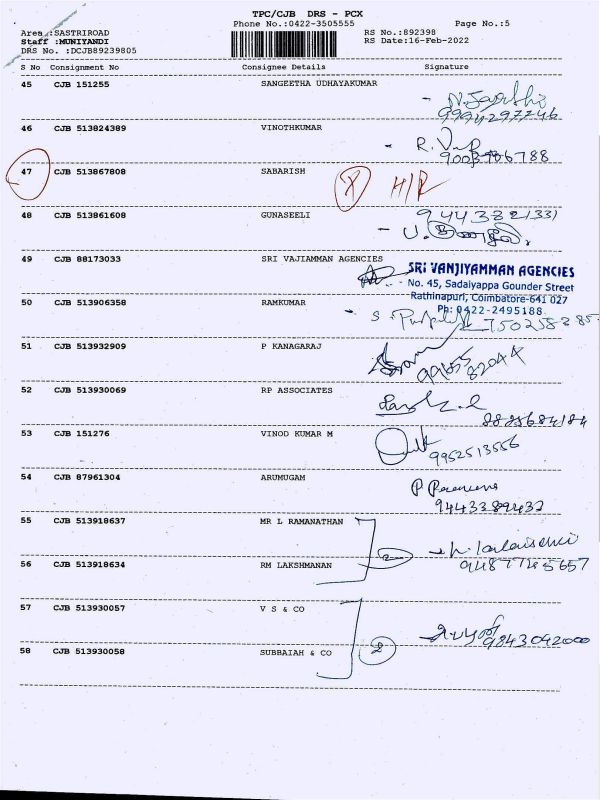 TPC/CJB DRS - PCX
Phone No.:0422-3505555
Page No.:5
Area :SASTRIROAD
RS No.:892398
Staff :MUNIYANDI
RS Date:16-Feb-2022
DRS No. :DCJB89239805
S No Consignment No Consignee Details Signature
45 CJB 151255 SANGEETHA UDHAYAKUMAR
9994297746
46 CJB 513824389 VINOTHKUMAR
47 CJB 513867808 SABARISH
48 CJB 513861608 GUNASEELI
9443821331
49 CJB 88173033 SRI VAJIAMMAN AGENCIES
SRI VANJIYAMMAN AGENCIES
No. 45, Sadaiyappa Gounder Street
Rathinapuri, Coimbatore-641 027
Ph: 0422-2495188
50 CJB 513906358 RAMKUMAR
51 CJB 513932909 P KANAGARAJ
52 CJB 513930069 RP ASSOCIATES
53 CJB 151276 VINOD KUMAR M
9952513556
54 CJB 87961304 ARUMUGAM
9443389432
55 CJB 513918637 MR L RAMANATHAN
56 CJB 513918634 RM LAKSHMANAN
2
57 CJB 513930057 V S & CO
58 CJB 513930058 SUBBAIAH & CO
2
9843042000